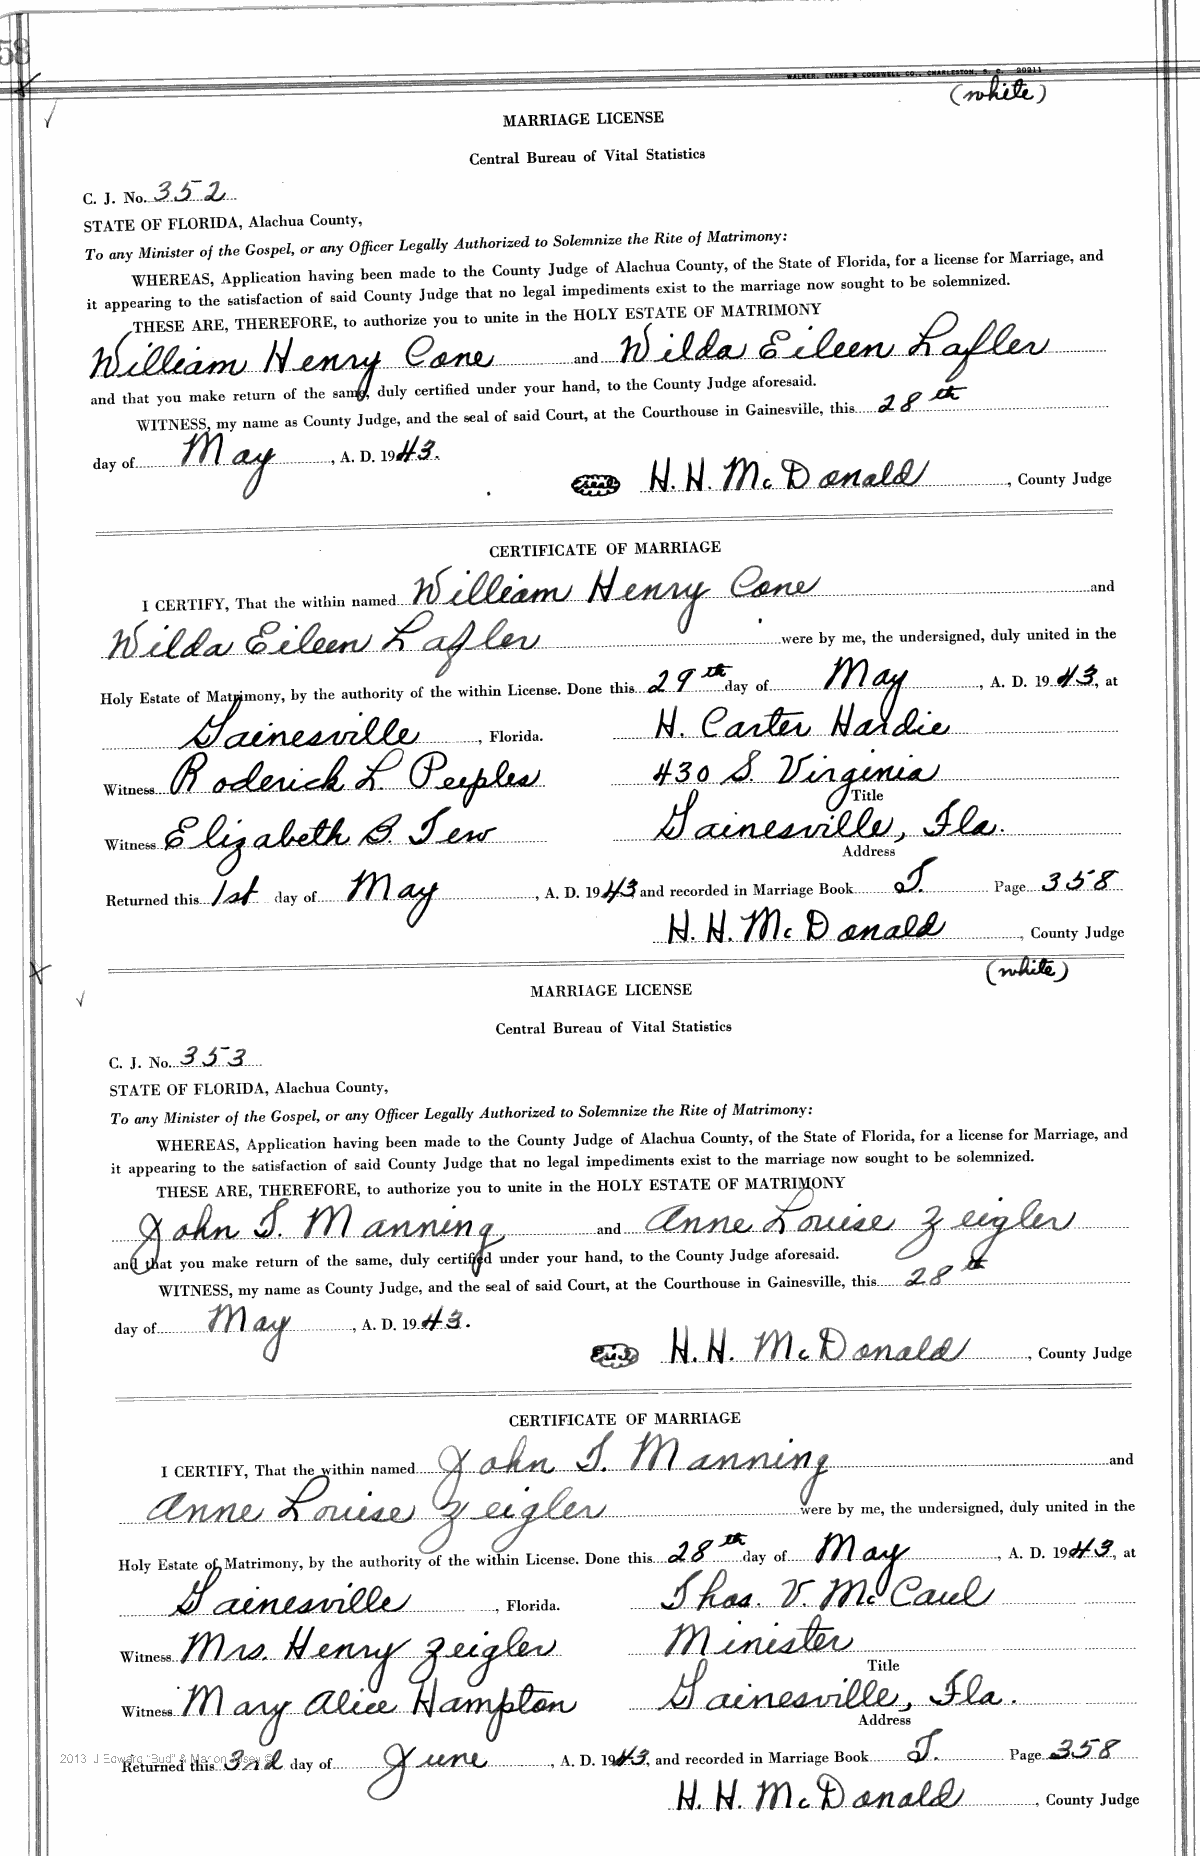 58
WALKER, EVANS & COGSWELL CO., CHARLESTON, S. C. 20211
(white)
MARRIAGE LICENSE
Central Bureau of Vital Statistics
C. J. No. 352
STATE OF FLORIDA, Alachua County,
To any Minister of the Gospel, or any Officer Legally Authorized to Solemnize the Rite of Matrimony:
WHEREAS, Application having been made to the County Judge of Alachua County, of the State of Florida, for a license for Marriage, and
it appearing to the satisfaction of said County Judge that no legal impediments exist to the marriage now sought to be solemnized.
THESE ARE, THEREFORE, to authorize you to unite in the HOLY ESTATE OF MATRIMONY
William Henry Cone and Wilda Eileen Lafler
and that you make return of the same, duly certified under your hand, to the County Judge aforesaid.
WITNESS, my name as County Judge, and the seal of said Court, at the Courthouse in Gainesville, this 28th
day of May, A. D. 1943.
seal H. H. McDonald, County Judge
CERTIFICATE OF MARRIAGE
I CERTIFY, That the within named William Henry Cone and
Wilda Eileen Lafler were by me, the undersigned, duly united in the
Holy Estate of Matrimony, by the authority of the within License. Done this 29th day of May, A. D. 1943, at
Gainesville, Florida. H. Carter Hardie
Witness Roderick L. Peeples 430 S. Virginia
Title
Witness Elizabeth B. Tew Gainesville, Fla.
Address
Returned this 1st day of May, A. D. 1943 and recorded in Marriage Book T. Page 358
H. H. McDonald, County Judge
(white)
MARRIAGE LICENSE
Central Bureau of Vital Statistics
C. J. No. 353
STATE OF FLORIDA, Alachua County,
To any Minister of the Gospel, or any Officer Legally Authorized to Solemnize the Rite of Matrimony:
WHEREAS, Application having been made to the County Judge of Alachua County, of the State of Florida, for a license for Marriage, and
it appearing to the satisfaction of said County Judge that no legal impediments exist to the marriage now sought to be solemnized.
THESE ARE, THEREFORE, to authorize you to unite in the HOLY ESTATE OF MATRIMONY
John T. Manning and Anne Louise Zeigler
and that you make return of the same, duly certified under your hand, to the County Judge aforesaid.
WITNESS, my name as County Judge, and the seal of said Court, at the Courthouse in Gainesville, this 28th
day of May, A. D. 1943.
seal H. H. McDonald, County Judge
CERTIFICATE OF MARRIAGE
I CERTIFY, That the within named John T. Manning and
Anne Louise Zeigler were by me, the undersigned, duly united in the
Holy Estate of Matrimony, by the authority of the within License. Done this 28th day of May, A. D. 1943, at
Gainesville, Florida. Thos. V. McCaul
Witness Mrs. Henry Zeigler Minister
Title
Witness Mary Alice Hampton Gainesville, Fla.
Address
2013 J Edward "Bud" & Marion
Returned this 3rd day of June, A. D. 1943, and recorded in Marriage Book T. Page 358
H. H. McDonald, County Judge